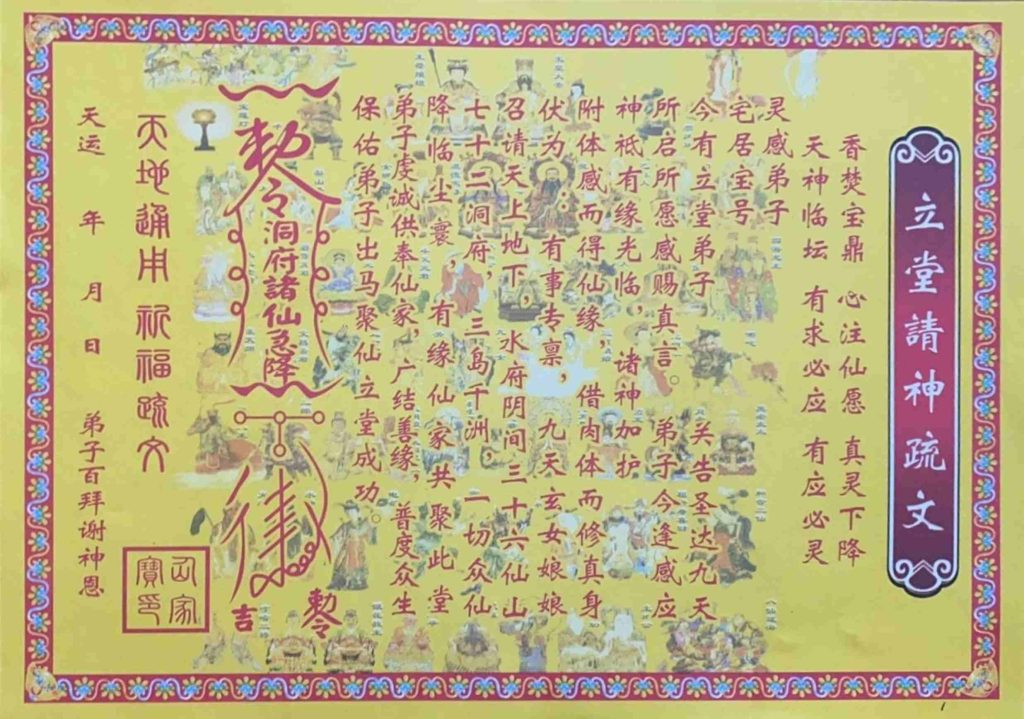 立堂請神疏文
香焚宝鼎 心注仙愿 真灵下降
天神临坛 有求必应 有应必灵
灵感弟子
宅居宝号
今有立堂弟子 关告圣达九天
所启所愿感赐真言。弟子今逢感应
神祇有缘光临，诸神加护
附体感而得仙缘，借肉体而修真身
伏为：有事专禀，九天玄女娘娘
召请天上地下，水府阴间三十六仙山
七十二洞府，三岛千洲，一切众仙
降临尘寰，有缘仙家共聚此堂
弟子虔诚供奉仙家，广结善缘，普度众生
保佑弟子出马聚仙立堂成功。
敕令洞府諸仙急降
敕令
吉
天地通用 祈福疏文
天运 年 月 日 弟子百拜谢神恩
仙家寶印